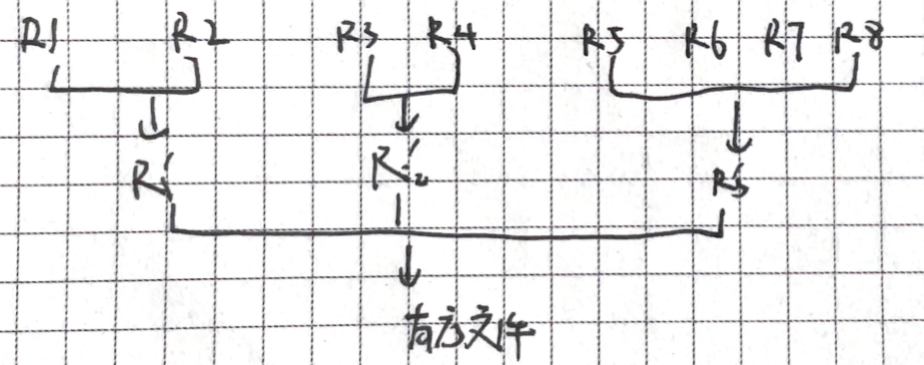 R1 R2 R3 R4 R5 R6 R7 R8
R1' R2' R3'
有序文件